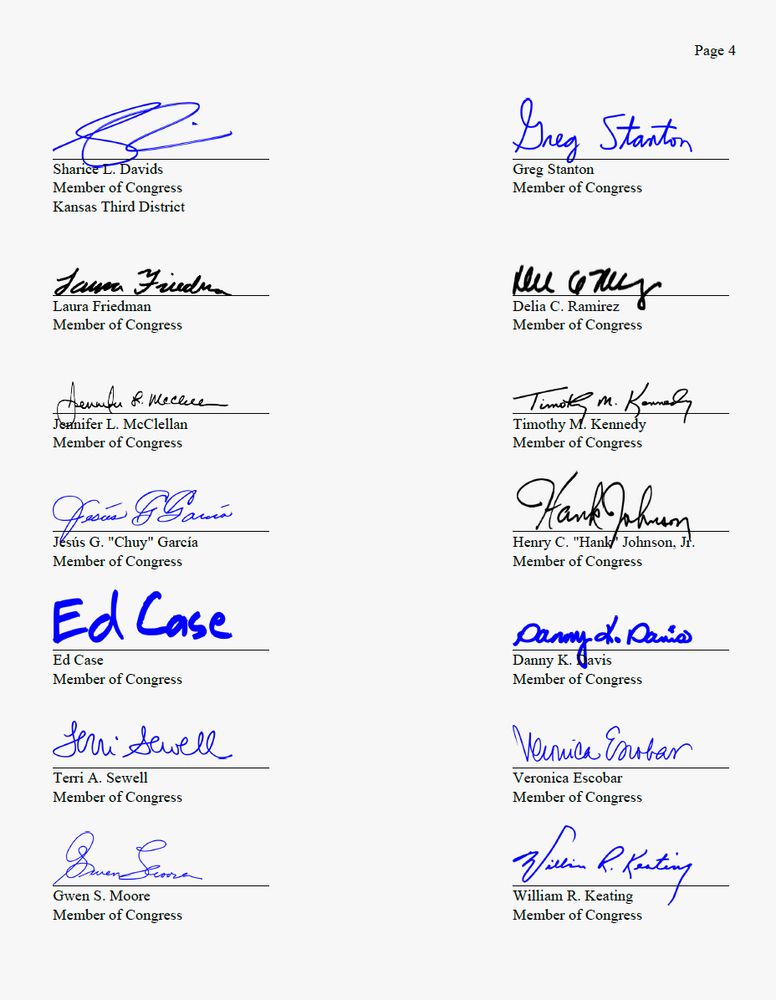 Page 4
Sharice L. Davids
Member of Congress
Kansas Third District
Greg Stanton
Greg Stanton
Member of Congress
Laura Friedman
Laura Friedman
Member of Congress
Delia C. Ramirez
Member of Congress
Jennifer L. McClellan
Member of Congress
Timothy M. Kennedy
Timothy M. Kennedy
Member of Congress
Jesús G García
Jesús G. "Chuy" García
Member of Congress
Hank Johnson
Henry C. "Hank" Johnson, Jr.
Member of Congress
Ed Case
Ed Case
Member of Congress
Danny K. Davis
Danny K. Davis
Member of Congress
Terri Sewell
Terri A. Sewell
Member of Congress
Veronica Escobar
Veronica Escobar
Member of Congress
Gwen Moore
Gwen S. Moore
Member of Congress
William R. Keating
William R. Keating
Member of Congress